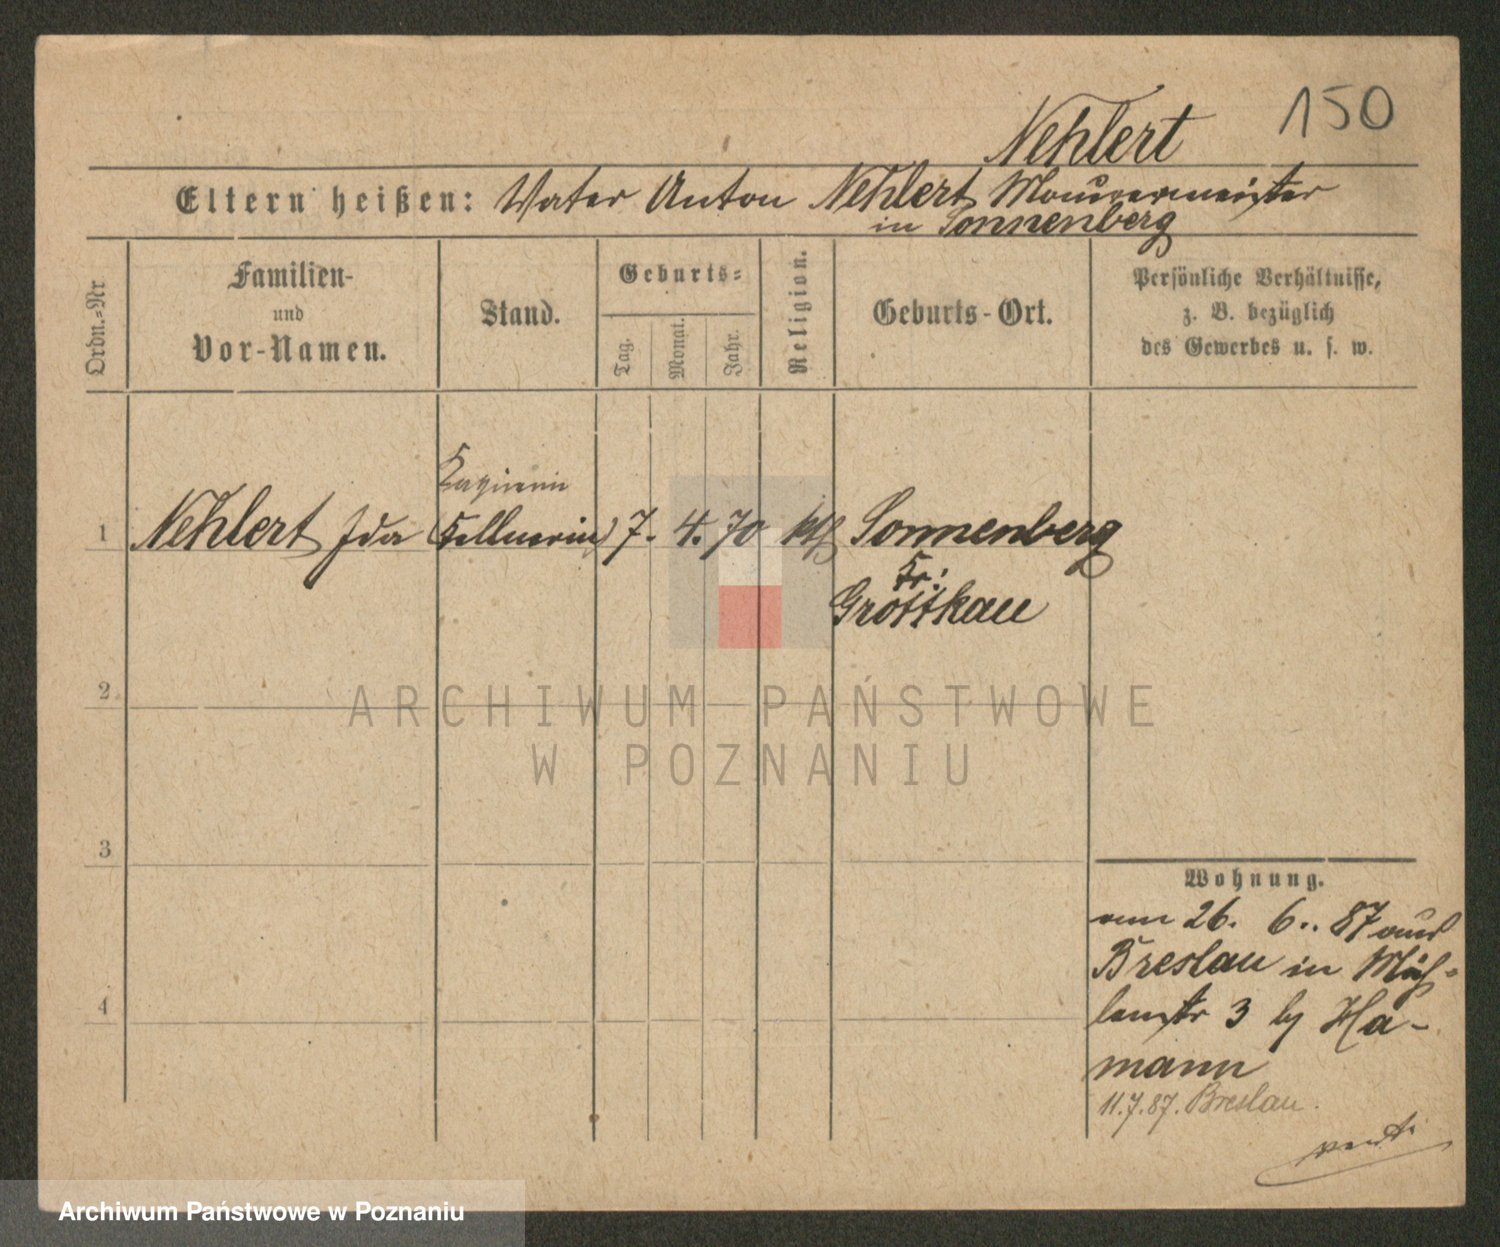 150
Nehlert
Eltern heißen: Vater Anton Nehlert Maurermeister
in Sonnenberg
Ordn.-Nr
Familien-
und
Vor-Namen.
Stand.
Geburts-
Tag.
Monat.
Jahr.
Religion.
Geburts-Ort.
Persönliche Verhältnisse,
z. B. bezüglich
des Gewerbes u. s. w.
1 Nehlert Ida (Kellnerin) 7. 4. 70 kth Sonnenberg
Kr:
Grottkau
2
3
4
Wohnung.
am 26. 6.. 87 aus
Breslau in Müh-
lenstr 3 by Ha-
mann
11.7.87. Breslau.
vert.
ARCHIWUM PAŃSTWOWE
W POZNANIU
Archiwum Państwowe w Poznaniu